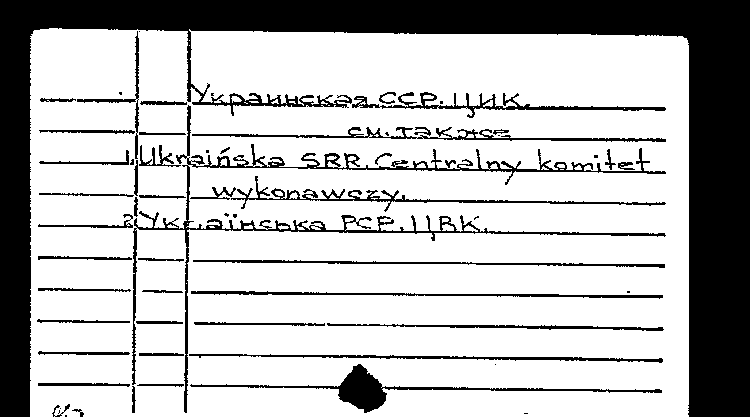 Украинская ССР. ЦИК.
см. также
1. Ukraińska SRR. Centralny komitet
wykonawczy.
2. Українська РСР. ЦВК.